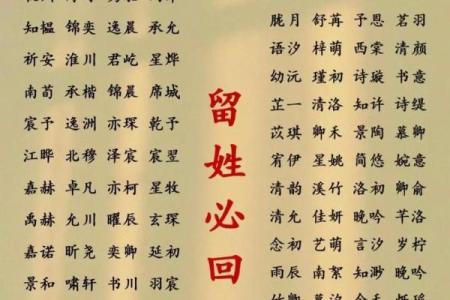 知韫 锦奕 逸晨 承允
祈安 淮川 君屹 星烨
南荀 承楷 锦晨 席城
宸予 逸洲 亦琛 乾予
江晔 北穆 泽宸 宸翌
嘉赫 卓凡 亦柯 星牧
禹赫 允川 曜辰 玄琛
嘉诺 昕尧 奕卿 延初
景和 啸轩 书川 羽宸
留姓必回
胧月 舒苒 予恩 茗羽
语汐 梓萌 西棠 清颜
幼沅 瑾初 诗璇 书意
芷一 清洛 知许 诗缇
苡琪 卿禾 景陶 慕卿
宥伊 星姚 简悠 婉意
清韵 溪竹 洛初 卿俞
清允 佳妍 晚吟 芊洛
念初 艺萌 言汐 岁柠
雨辰 南絮 知渺 晚吟